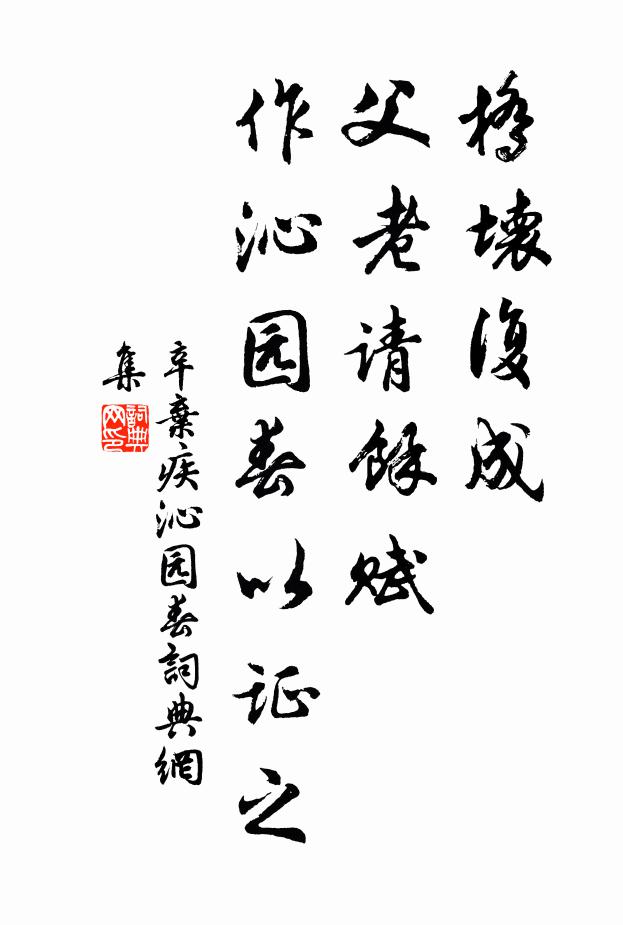 橋壊復成
父老请餘赋
作沁园春以证之
辛棄疾沁园春詞典網
集
詞典
网印